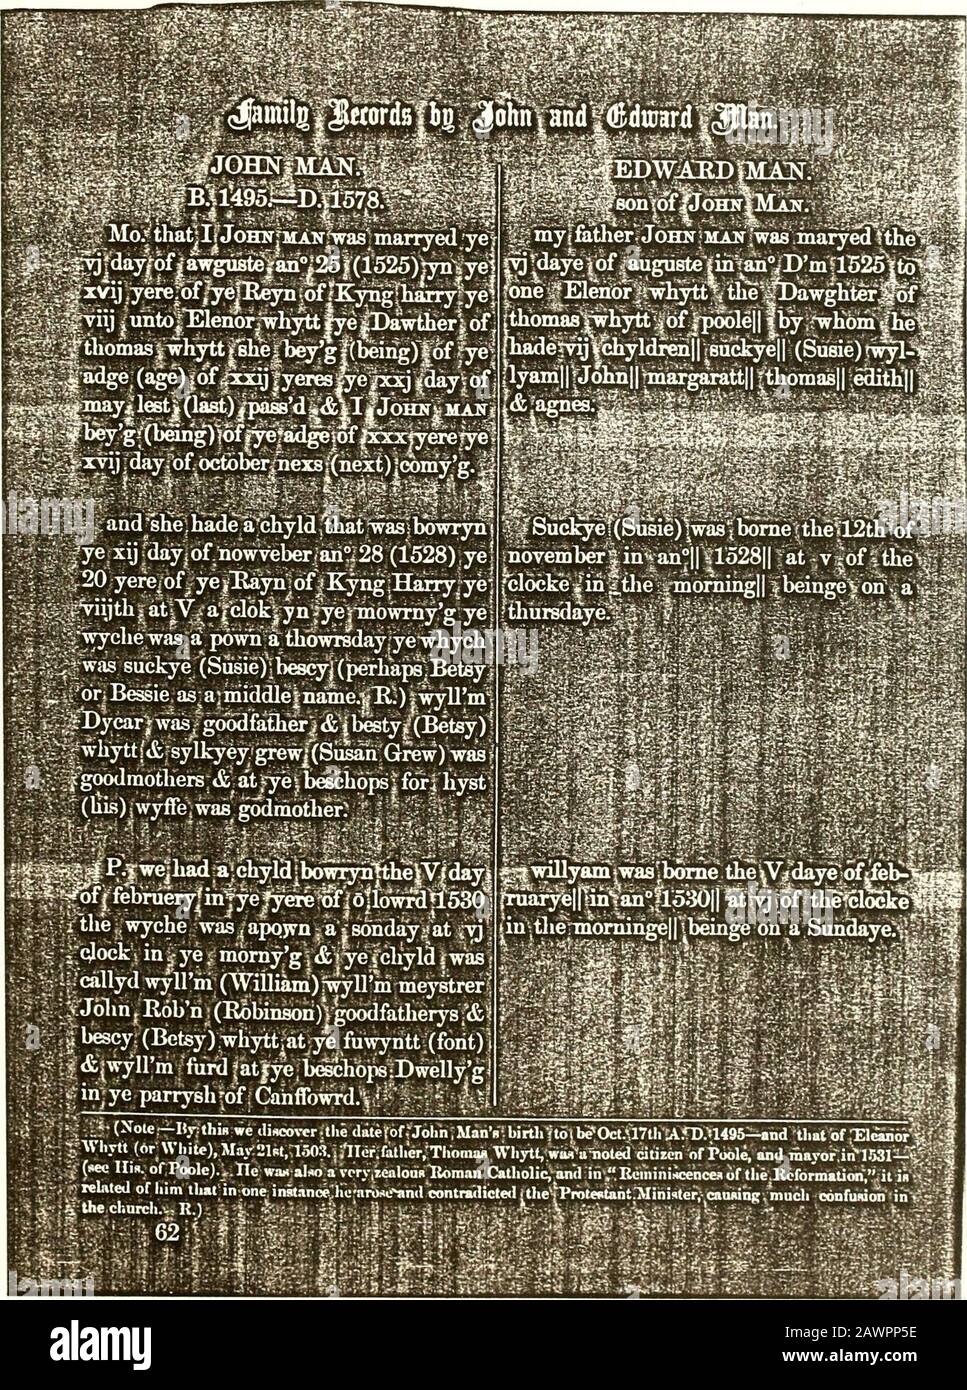 Family Records by John and Edward Man.
JOHN MAN.
B. 1495.—D. 1578.
Mo. that I JOHN MAN was marryed ye
vj day of awguste an° 25 (1525) yn ye
xvij yere of ye Reyn of Kyng harry ye
viij unto Elenor whytt ye Dawther of
thomas whytt she bey'g (being) of ye
adge (age) of xxij yeres ye xxj day of
may lest (last) pass'd & I JOHN MAN
bey'g (being) of ye adge of xxx yere ye
xvij day of october nexs (next) comy'g.
and she hade a chyld that was bowryn
ye xij day of nowveber an° 28 (1528) ye
20 yere of ye Rayn of Kyng Harry ye
viijth at V a clok yn ye mowrny'g ye
wyche was a pown a thowrsday ye whych
was suckye (Susie) bescy (perhaps Betsy
or Bessie as a middle name. R.) wyll'm
Dycar was goodfather & besty (Betsy)
whytt & sylkyey grew (Susan Grew) was
goodmothers & at ye beschops for hyst
(his) wyffe was godmother.
P. we had a chyld bowryn the V day
of februery in ye yere of o lowrd 1530
the wyche was apown a sonday at vj
clock in ye morny'g & ye chyld was
callyd wyll'm (William) wyll'm meystrer
John Rob'n (Robinson) goodfatherys &
bescy (Betsy) whytt at ye fuwyntt (font)
& wyll'm furd at ye beschops Dwelly'g
in ye parrysh of Canffowrd.
EDWARD MAN.
son of JOHN MAN.
my father JOHN MAN was maryed the
vj daye of auguste in an° D'm 1525 to
one Elenor whytt the Dawghter of
thomas whytt of poole|| by whom he
hade vij chyldren|| suckye|| (Susie) wyl-
lyam|| John|| margaratt|| thomas|| edith||
& agnes.
Suckye (Susie) was borne the 12th of
november in an°|| 1528|| at v of the
clocke in the morning|| beinge on a
thursdaye.
willyam was borne the V daye of feb-
ruarye|| in an° 1530|| at vj of the clocke
in the morninge|| beinge on a Sundaye.
(Note—By this we discover the date of John Man's birth to be Oct. 17th A. D. 1495—and that of Eleanor
Whytt (or White), May 21st, 1503. Her father, Thomas Whytt, was a noted citizen of Poole, and mayor in 1531—
(see His. of Poole). He was also a very zealous Roman Catholic, and in "Reminiscences of the Reformation," it is
related of him that in one instance he arose and contradicted the Protestant Minister, causing much confusion in
the church. R.)
62
alamy
Image ID: 2AWPP5E
www.alamy.com